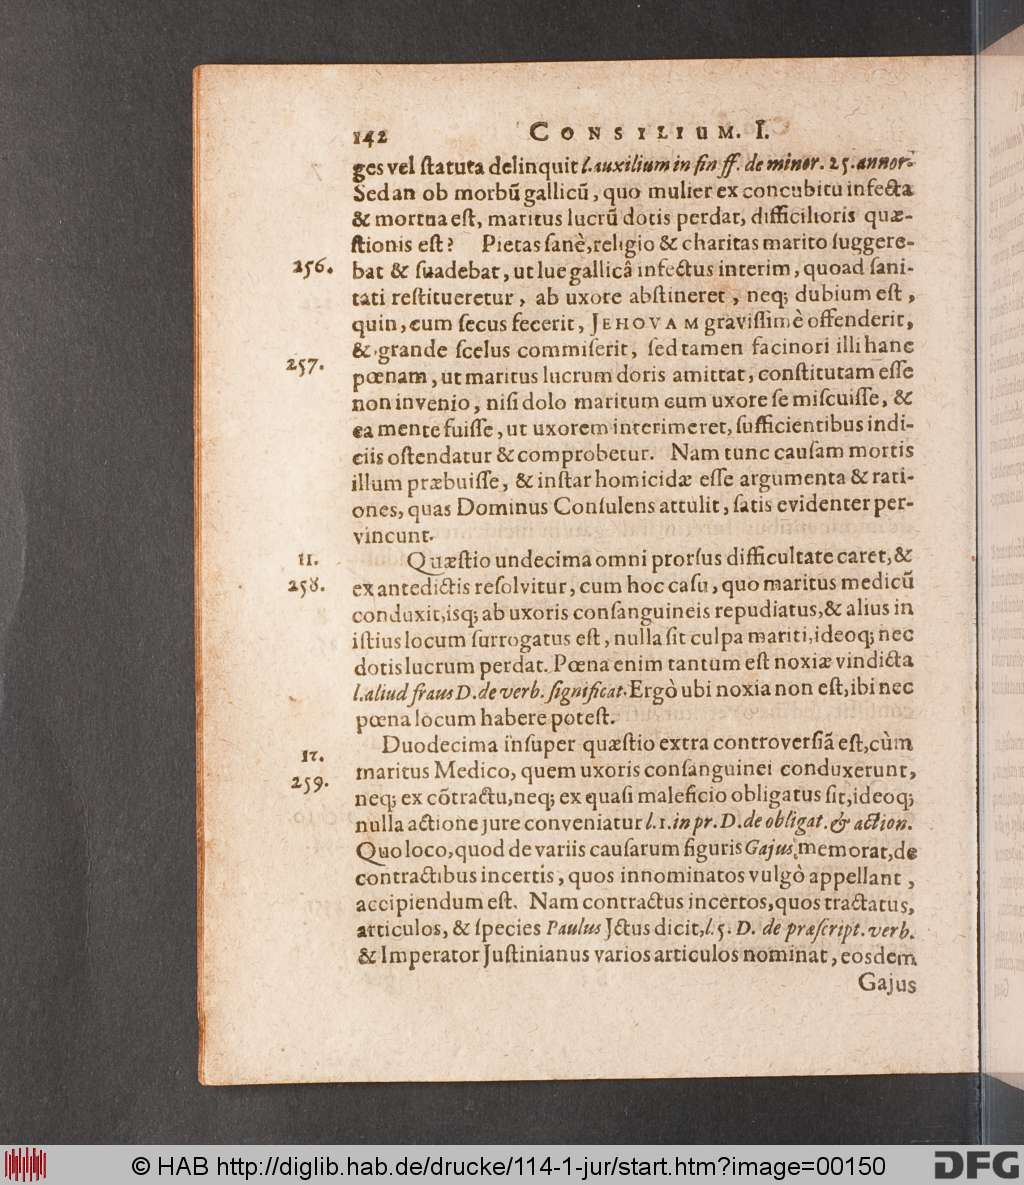 142 CONSILIUM. I.
ges vel ſtatuta delinquit l. auxilium in fin ff. de minor. 25. annor.
Sed an ob morbū gallicū, quo mulier ex concubitu infecta
& mortua eſt, maritus lucrū dotis perdat, difficilioris quæ-
ſtionis eſt? Pietas ſanè, religio & charitas marito ſuggere-
256. bat & ſuadebat, ut lue gallicâ infectus interim, quoad ſani-
tati reſtitueretur, ab uxore abſtineret, neq; dubium eſt,
quin, cum ſecus fecerit, JEHOVAM graviſſimè offenderit,
& grande ſcelus commiſerit, ſed tamen facinori illi hanc
257. pœnam, ut maritus lucrum doris amittat, conſtitutam eſſe
non invenio, niſi dolo maritum cum uxore ſe miſcuiſſe, &
ea mente fuiſſe, ut uxorem interimeret, ſufficientibus indi-
ciis oſtendatur & comprobetur. Nam tunc cauſam mortis
illum præbuiſſe, & inſtar homicidæ eſſe argumenta & rati-
ones, quas Dominus Conſulens attulit, ſatis evidenter per-
vincunt.
11. Quæſtio undecima omni prorſus difficultate caret, &
258. ex antedictis reſolvitur, cum hoc caſu, quo maritus medicū
conduxit, isq; ab uxoris conſanguineis repudiatus, & alius in
iſtius locum ſurrogatus eſt, nulla ſit culpa mariti, ideoq; nec
dotis lucrum perdat. Pœna enim tantum eſt noxiæ vindicta
l. aliud fraus D. de verb. ſignificat. Ergò ubi noxia non eſt, ibi nec
pœna locum habere poteſt.
Duodecima inſuper quæſtio extra controverſiã eſt, cùm
12. maritus Medico, quem uxoris conſanguinei conduxerunt,
259. neq; ex cõtractu, neq; ex quaſi maleficio obligatus ſit, ideoq;
nulla actione jure conveniatur l. 1. in pr. D. de obligat. & action.
Quo loco, quod de variis cauſarum figuris Gajus memorat, de
contractibus incertis, quos innominatos vulgò appellant,
accipiendum eſt. Nam contractus incertos, quos tractatus,
articulos, & ſpecies Paulus JCtus dicit, l. 5. D. de præſcript. verb.
& Imperator Juſtinianus varios articulos nominat, eosdem
Gajus
© HAB http://diglib.hab.de/drucke/114-1-jur/start.htm?image=00150
DFG